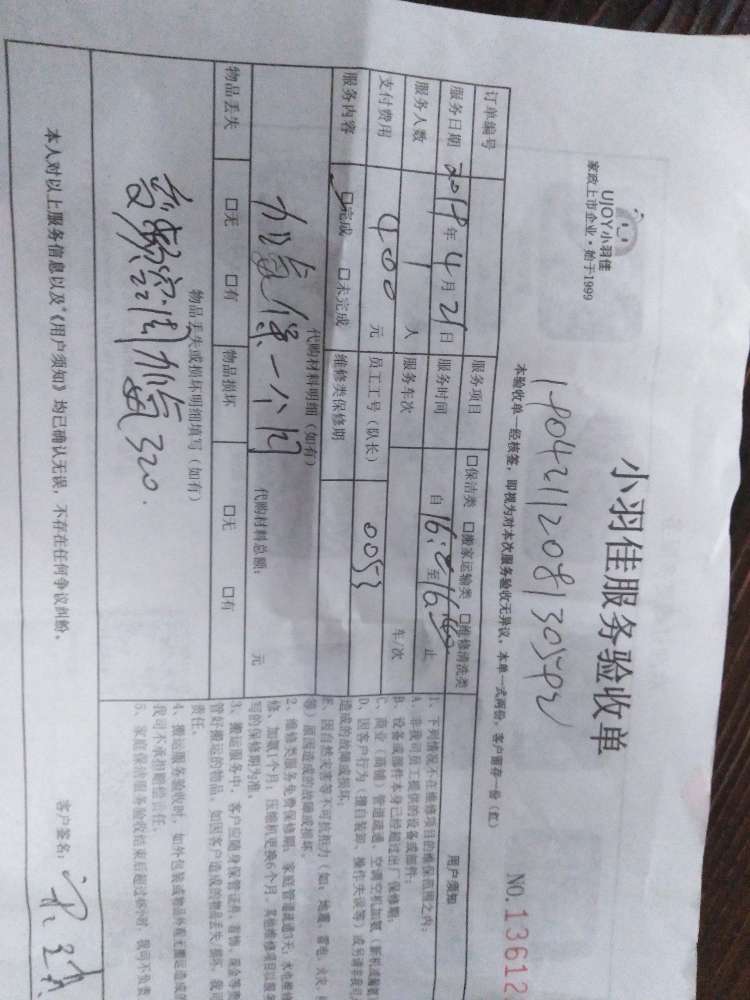 UJOY小羽佳
家政上市企业·始于1999
小羽佳服务验收单
NO.13612
本验收单一经核签，即视为对本次服务验收无异议。本单一式两份，客户留存一份（红）
订单编号
服务项目 □保洁类 □搬家运输类 □维修清洗类
服务日期 2019年4月21日 服务时间 自 至 止
服务人数 1 人 服务车次 车/次
支付费用 400 元 员工工号（队长） 0053
服务内容 □完成 □未完成 维修类保修期
代购材料明细（如有）
加氟保一个月
代购材料总额： 元
物品丢失 □无 □有 物品损坏 □无 □有
物品丢失或损坏明细填写（如有）
空调加氟320.
本人对以上服务信息以及《用户须知》均已确认无误，不存在任何争议纠纷。
客户签名：
用户须知
1、下列情况不在维修项目的维保范围之内：
A、非我司员工提供的设备或部件；
B、设备或部件本身已经超过出厂保修期；
C、商业（商铺）管道疏通、空调空机加氟（新机或漏氟
D、因客户行为（擅自装卸、操作失误等）或另请非我司
造成的故障或损坏；
E、因自然灾害等不可抗拒力（如：地震、雷电、火灾、
等）原因造成的故障或损坏。
2、维修类服务免费保修期：家庭管道疏通3天；水电维修
修、加氟1个月；压缩机更换6个月，其他维修项目以服务
写的保修期为准。
3、搬运服务中，客户应随身保管证件、首饰、现金等贵
管好搬运的物品，如因客户造成的物品丢失、损坏，我司
责任。
4、搬运服务验收时，如外包装或物品外观无搬运造成的
我司不承担赔偿责任。
5、家庭保洁服务验收结束后超过48小时，我司不负责